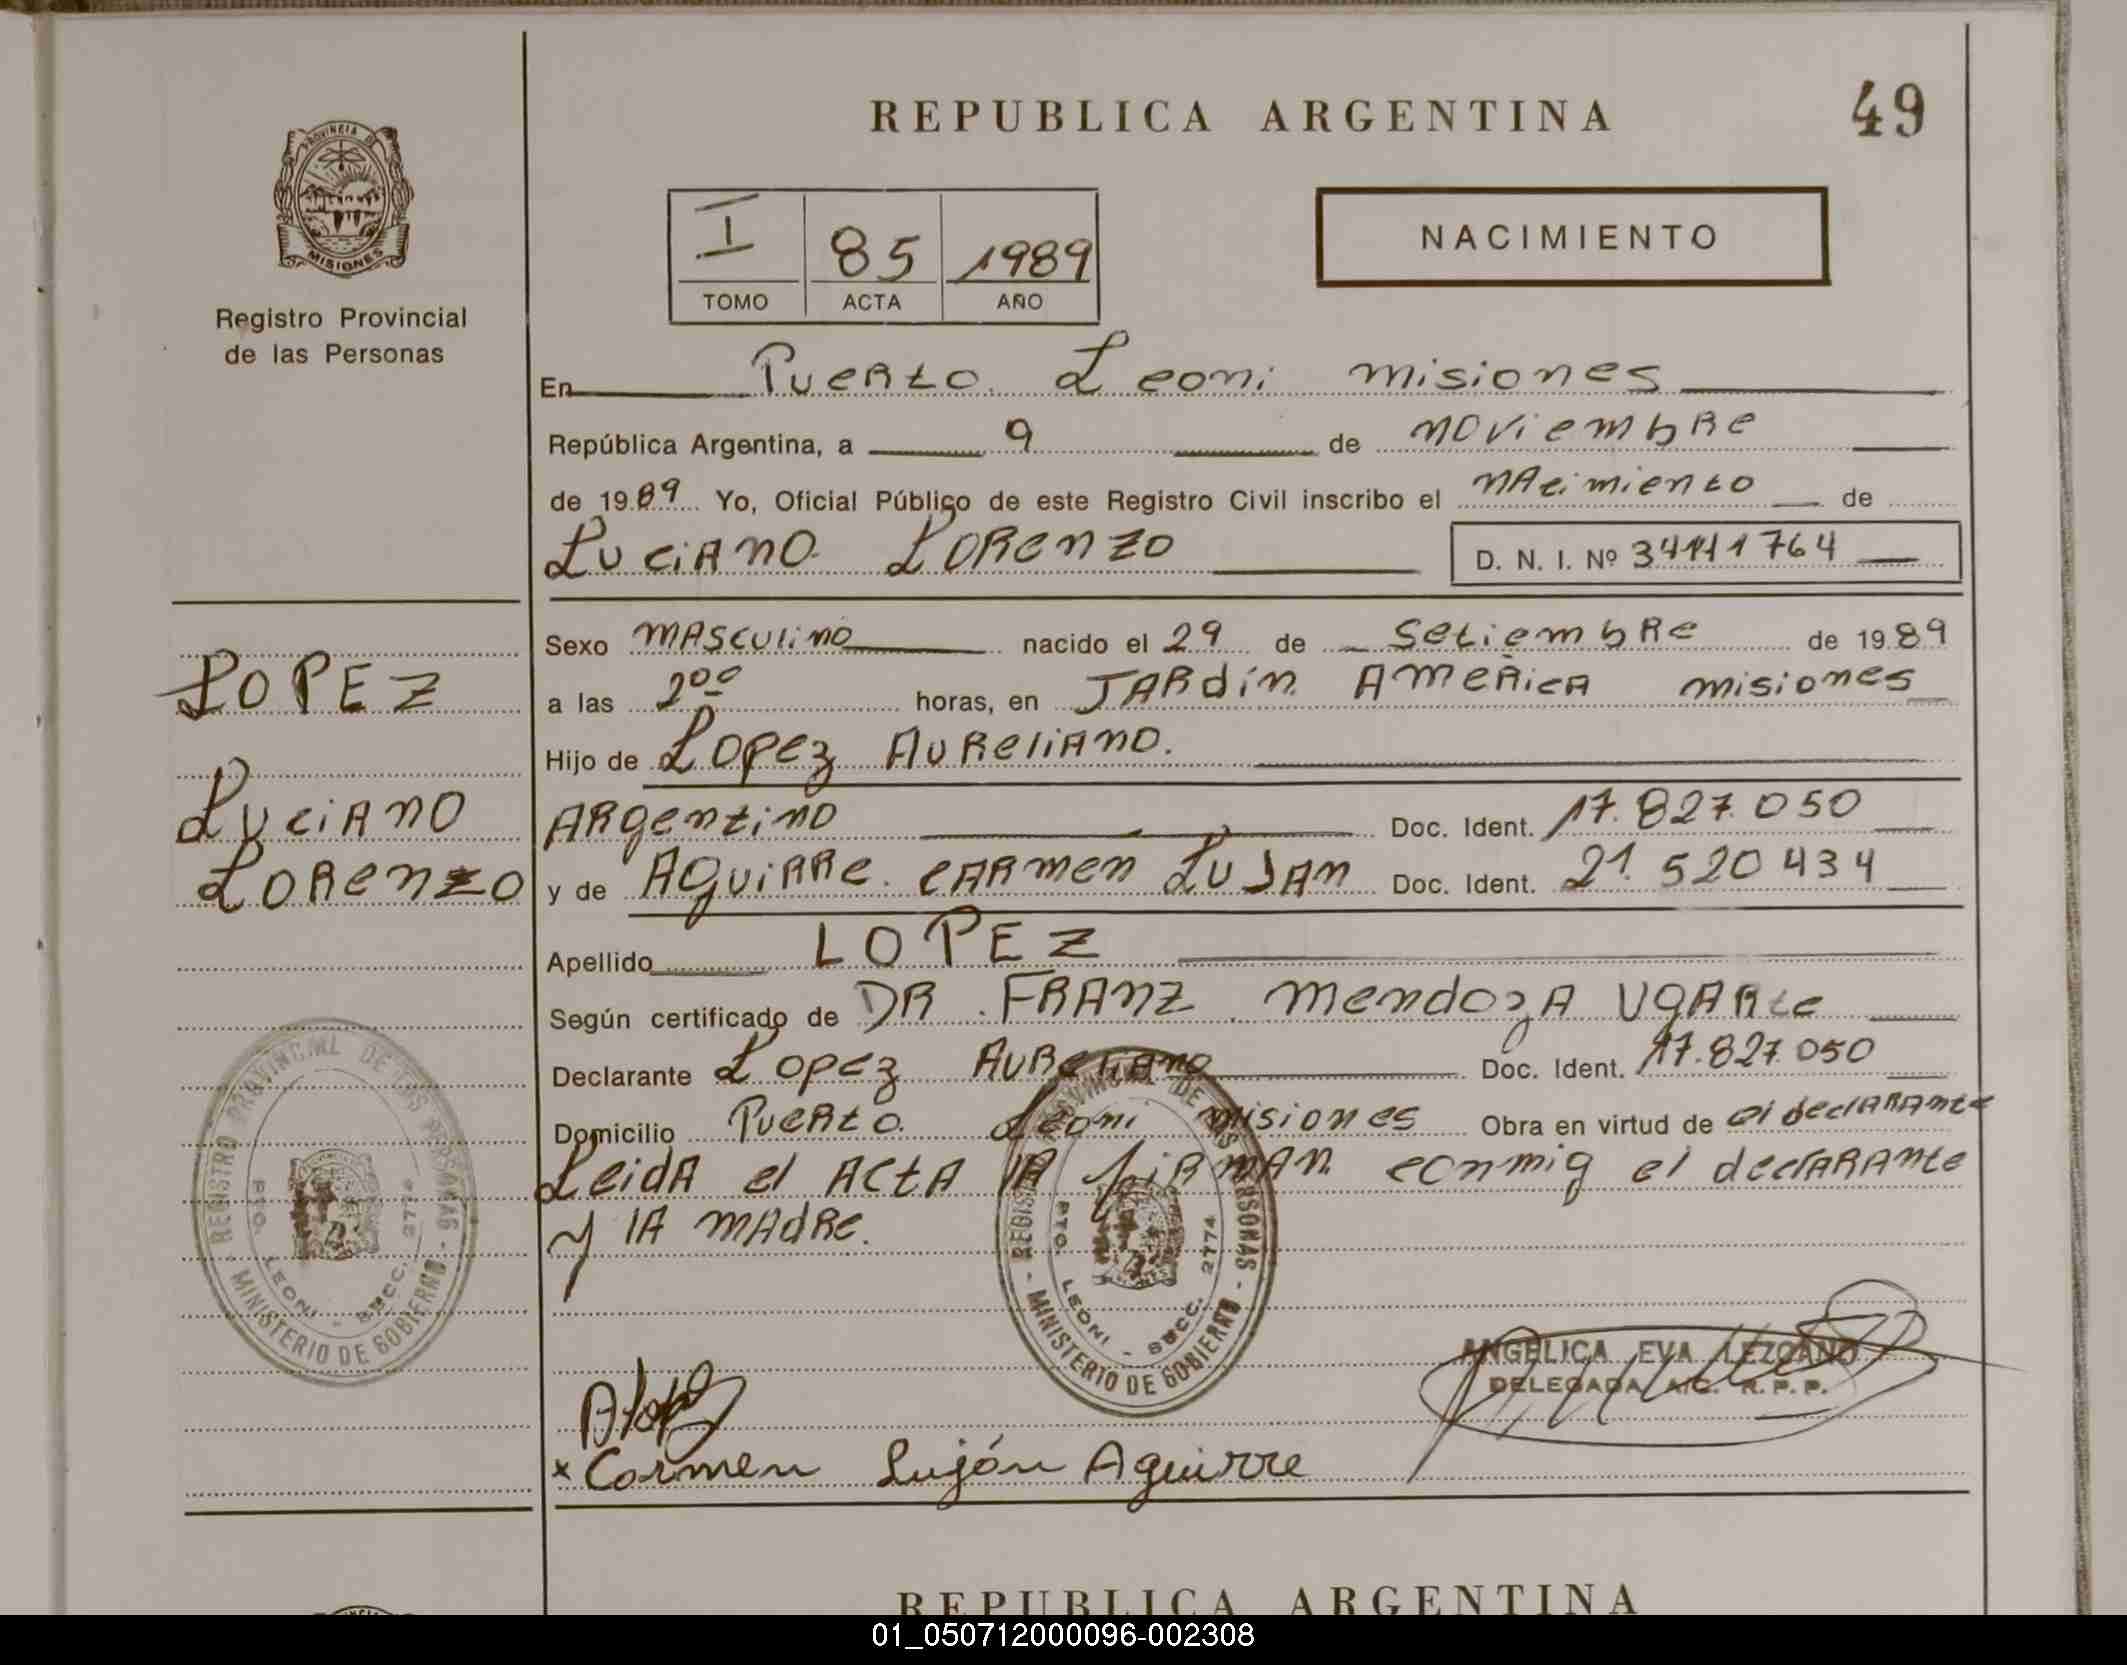 REPUBLICA ARGENTINA
49
PROVINCIA DE
MISIONES
Registro Provincial
de las Personas
I 85 1989
TOMO ACTA AÑO
NACIMIENTO
En Puerto Leoni misiones
República Argentina, a 9 de noviembre
de 1989 Yo, Oficial Público de este Registro Civil inscribo el nacimiento de
Luciano Lorenzo D. N. I. Nº 34111764
Sexo masculino nacido el 29 de Setiembre de 1989
a las 2ºº horas, en JARdín AMERicA misiones
Hijo de Lopez Aureliano.
Argentino Doc. Ident. 17.827.050
y de Aguirre Carmen Lujan Doc. Ident. 21.520434
Apellido LOPEZ
Según certificado de DR. FRANZ mendoza UgARte
Declarante Lopez Aureliano Doc. Ident. 17.827.050
Domicilio Puerto Leoni misiones Obra en virtud de el declarante
Leida el Acta la firman conmig el declarante
y la madre.
LOPEZ
Luciano
Lorenzo
REGISTRO PROVINCIAL DE LAS PERSONAS - MINISTERIO DE GOBIERNO -
PTO. LEONI - SECC. 2774
REGISTRO PROVINCIAL DE LAS PERSONAS - MINISTERIO DE GOBIERNO -
PTO. LEONI - SECC. 2774
ANGELICA EVA LEZCANO
DELEGADA A/C. R.P.P.
A Lopez
x Carmen Luján Aguirre
REPUBLICA ARGENTINA
01_050712000096-002308